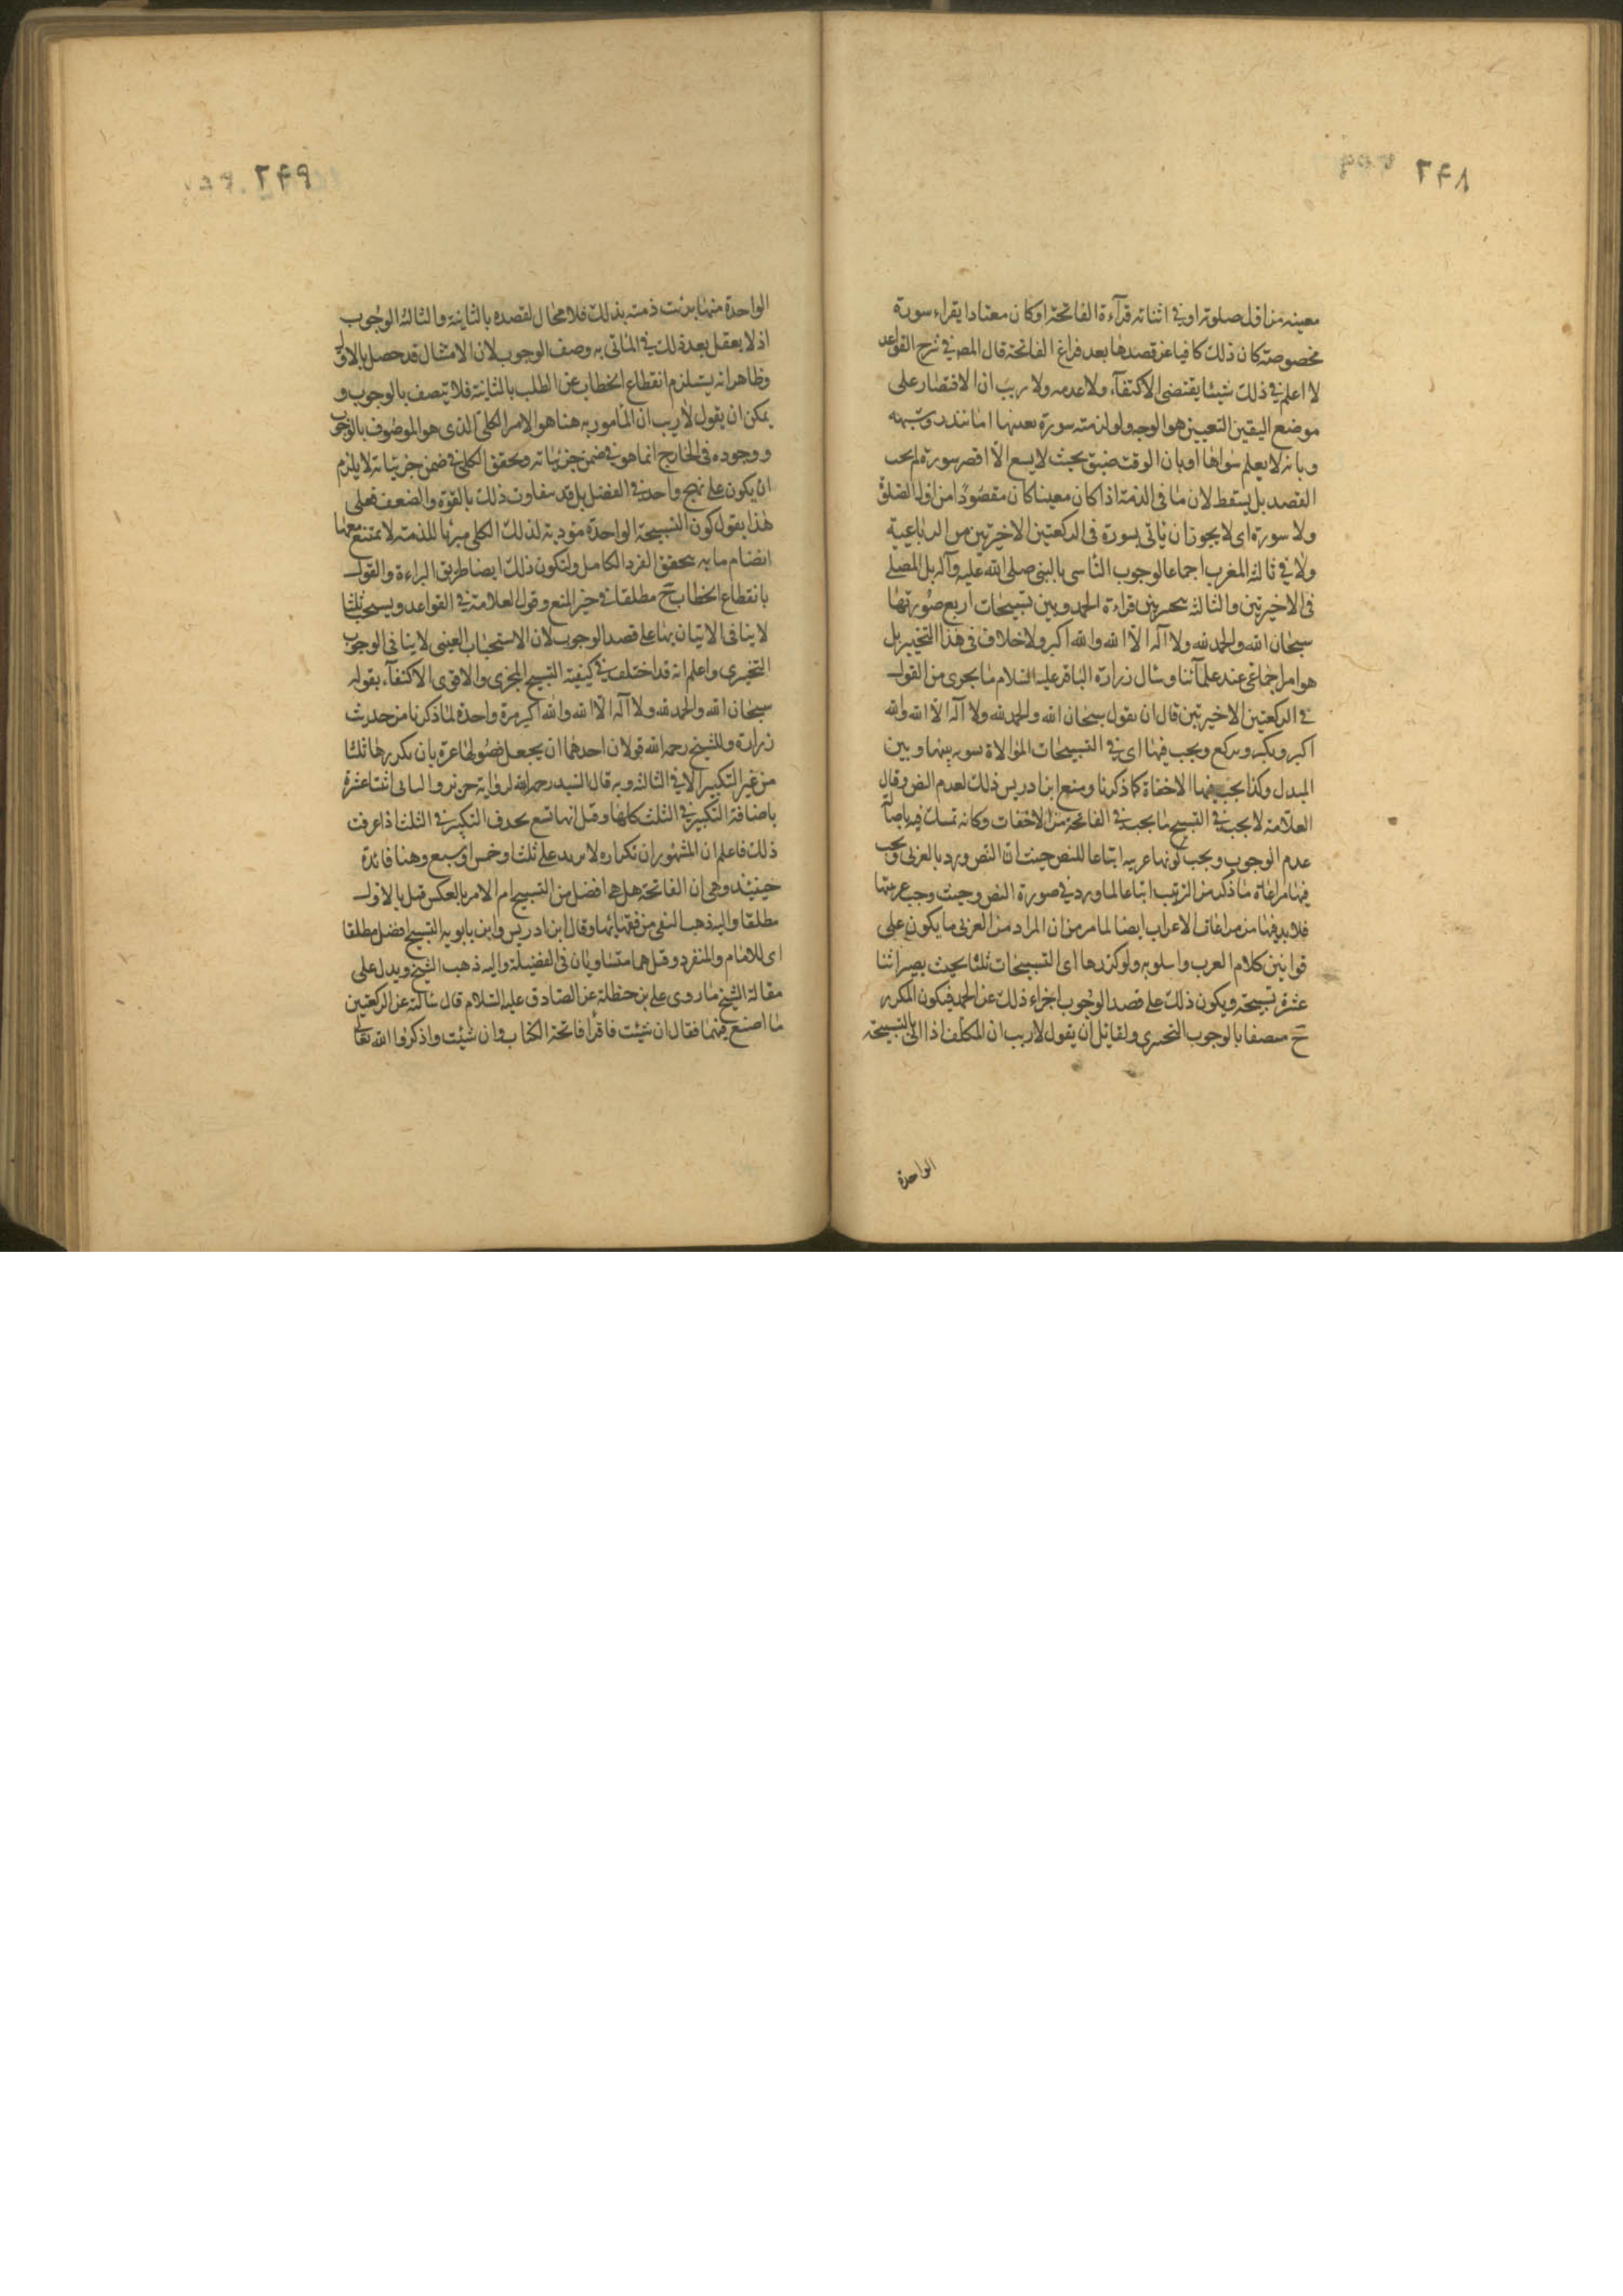 ٢٤٨
معينه من اول صلوته او في اثنائه قرآءة الفاتحة او كان معتادا يقراء سورة
مخصوصته كان ذلك كافيا عن قصدها بعد فراغ الفاتحة قال المص في شرح القواعد
لا اعلم في ذلك شيئا يقتضى الاكتفآء ولا عدمه ولا ريب ان الاقتصار على
موضع اليقين التعيين هو الوجه ولو لزمته سورة بعينها اما بنذر وشبهه
وبانه لا يعلم سواها او بان الوقت ضيق بحيث لا يسع الا اقصر سورة لم يجب
القصد بل يسقط لان ما في الذمة اذا كان معينا كان مقصودا من اول الصلوة
ولا سورة اى لا يجوز ان ياتى بسورة فى الركعتين الاخيرتين من الرباعية
ولا في ثالثة المغرب اجماعا لوجوب التأسى بالنبى صلى الله عليه وآله بل المصلى
فى الاخيرتين والثالثة يتخير بين قراءة الحمد وبين تسبيحات اربع صورتها
سبحان الله والحمد لله ولا آله الا الله والله اكبر ولا خلاف فى هذا التخيير بل
هو امر اجماعى عند علمآئنا وسال زرارة الباقر عليه السلام ما يجوى من القول
في الركعتين الاخيرتين قال ان تقول سبحان الله والحمد لله ولا آله الا الله والله
اكبر ويكبر ويركع ويجب فيها اى في التسبيحات الموالاة بينها وبين
المبدل وكذا يجب فيها الاخفاة كما ذكرنا ومنع ابن ادريس ذلك لعدم النص وقال
العلامة لا يجب في التسبيح ما يجب في الفاتحة من الاخفات وكانه تمسك فيه باصالة
عدم الوجوب ويجب كونها عربيه اتباعا للنص حيث ان النص ورد بالعربى ويجب
فيها مراعاة ما ذكر من الترتيب اتباعا لما ورد في صورة النص وحيث وجب عربيتها
فلا بد فيها من مراعات الاعراب ايضا لما مر من ان المراد من العربى ما يكون على
قوانين كلام العرب واسلوبه ولو كررها اى التسبيحات ثلثا بحيث يصير اثنا
عشرة تسبيحة ويكون ذلك على قصد الوجوب اجزاء ذلك عن الحمد فيكون المكرر
ح متصفا بالوجوب التخييرى ولقائل ان يقول لا ريب ان المكلف اذا اتى بالتسبيحة
الواحدة
٢٤٩
الواحدة منها برئت ذمته بذلك فلا مجال لقصده بالثانية والثالثة الوجوب
اذ لا يعقل بعد ذلك في الماتى به وصف الوجوب لان الامتثال قد حصل بالاول
وظاهر انه يستلزم انقطاع الخطاب عن الطلب بالثانية فلا يتصف بالوجوب و
يمكن ان يقول لا ريب ان المأمور به هنا هو الامر الكلى الذى هو الموصوف بالوجوب
ووجوده فى الخارج انما هو في ضمن جزئياته وتحقق الكلى في ضمن جزئياته لا يلزم
ان يكون على نهج واحد في الفضل بل قد يتفاوت ذلك بالقوة والضعف فعلى
هذا يقول كون التسبيحة الواحدة مؤدية لذلك الكلى مبرئا للذمة لا يمتنع معها
انضام ما به يتحقق الفرد الكامل ولتكون ذلك ايضا طريق البراءة والقول
بانقطاع الخطاب ح مطلقا في حيز المنع وقول العلامة في القواعد ويستحب ثلثا
لا ينافى الاتيان بها على قصد الوجوب لان الاستحباب العينى لا ينافى الوجوب
التخيرى واعلم انه قد اختلف في كيفية التسبيح المجزى والاقوى الاكتفآء بقوله
سبحان الله والحمد لله ولا آله الا الله والله اكبر مرة واحدة لما ذكرنا من حديث
زرارة وللشيخ رحمه الله قولان احدهما ان يجعل فصولها عشرة بان يكررها ثلثا
من غير التكبير الا في الثالثة وبه قال السيد رحمه الله لرواية حريز والثانى اثنتا عشرة
باضافة التكبير في الثلث كلها وقيل انها تسع بحذف التكبير في الثلث اذا عرفت
ذلك فاعلم ان المشهور ان تكراره لا يزيد على ثلث او خمس او سبع وهنا فائدة
حينئذ وهى ان الفاتحة هل هى افضل من التسبيح ام الامر بالعكس قيل بالاول
مطلقا واليه ذهب التقى من فقهائنا وقال ابن ادريس وابن بابويه التسبيح افضل مطلقا
اى للامام والمنفرد وقيل هما متساويان فى الفضيلة واليه ذهب الشيخ ويدل على
مقالة الشيخ ما روى على بن حنظلة عن الصادق عليه السلام قال سالته عن الركعتين
ما اصنع فيهما فقال ان شئت فاقرأ فاتحة الكتاب وان شئت واذكروا الله تعالى